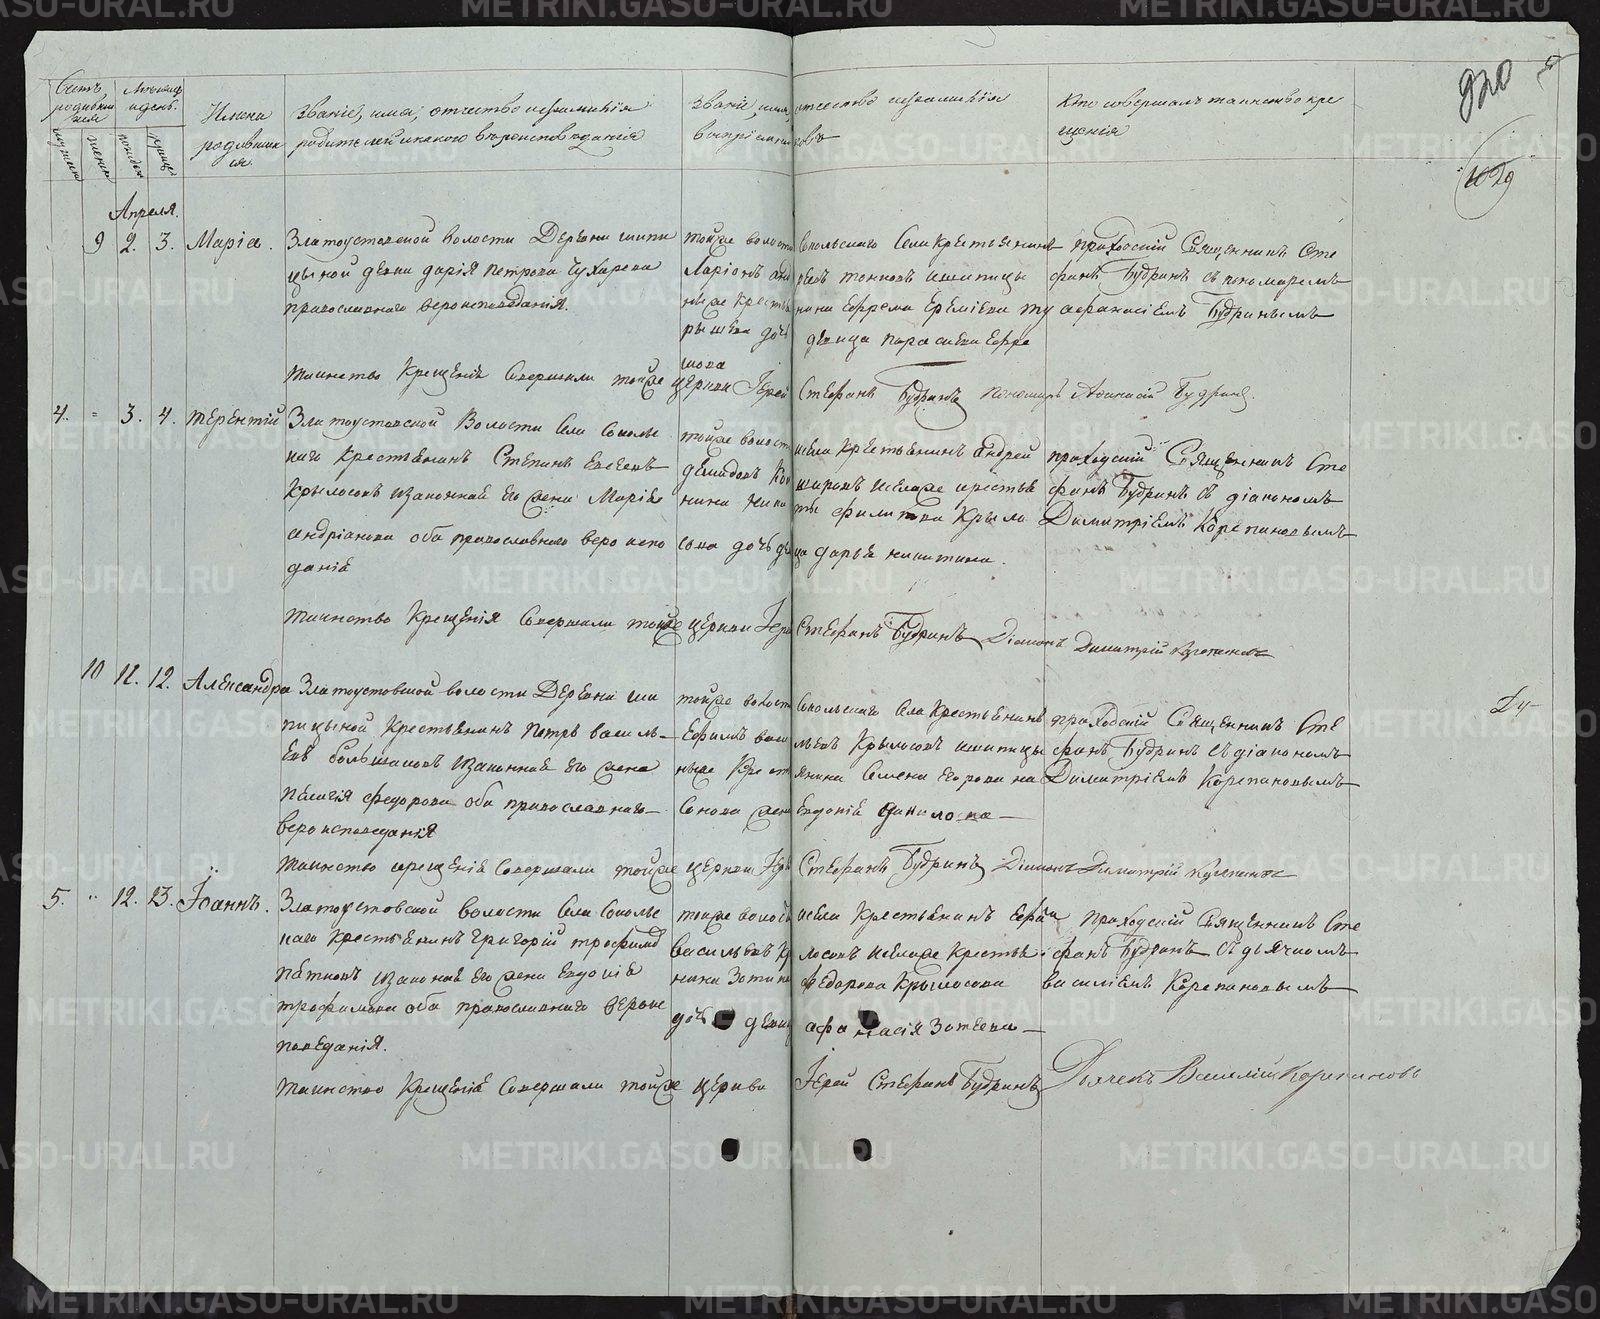 Счетъ родившихся
мужеска
женска
Месяцъ и день.
рожде
креще
Имена родившихся
Званіе, имя, отчество и фамилія
родителей и какого вероисповеданія
Званіе, имя, отчество и фамилія
воспріемниковъ
Кто совершалъ таинство кре
щенія
920
1029
Апреля.
9 2. 3. Марія.
Златоустовской Волости Деревни Шипи
цыной девки Дарія Петрова Чухарева
православнаго вероисповеданія.
тойже волости Сокольскаго Села Крестьянинъ
Ларіонъ
ниже крестьянина Ефрема Еремеева
рышева дочь девица Парасковья Ефре
мова
приходскій Священникъ Сте
фанъ Будринъ съ пономаремъ
Афанасіемъ Будринымъ
Таинство Крещенія Совершали тойже церкви Іерей Стефанъ Будринъ Пономарь Афанасій Будринъ.
4. " 3. 4. Терентій
Златоустовской Волости Села Соколь
наго Крестьянинъ Степанъ Евсеевъ
Крылосовъ и законная его жена Марія
Андріанова оба православнаго вероиспо
данія
тойже волости и села Крестьянинъ Андрей
Демидовъ и села же крестья
нина Ники ты Филипова Крыло
сова дочь девица Дарья Никитина.
приходскій Священникъ Сте
фанъ Будринъ съ діакономъ
Димитріемъ Корепановымъ
Таинство Крещенія Совершали тойже церкви Іерей Стефанъ Будринъ Діаконъ Димитрій Корепановъ
10 11. 12. Александра
Златоустовской волости Деревни Ши
пицыной Крестьянинъ Петръ Василь
евъ Большаковъ и законная его жена
Пелагія Федорова оба православнаго
вероисповеданія
тойже волости Сокольскаго Села Крестьянинъ
Ефимъ Васильевъ Крылосовъ и шипицы
ныже Крестьянина Семена Егорова
сонова жена Евдокія Данилова
приходскій Священникъ Сте
фанъ Будринъ съ діакономъ
Димитріемъ Корепановымъ
Таинство крещенія Совершали тойже церкви Іерей Стефанъ Будринъ Діаконъ Димитрій Корепановъ
5. " 12. 13. Іоаннъ.
Златоустовской волости Села Соколь
наго Крестьянинъ Григорій Трофимовъ
Пятковъ и законная его жена Евдокія
Трофимова оба православнаго верои
споведанія.
тойже волости и села Крестьянинъ
Васильевъ Крылосовъ и селаже Крестья
нина Зотика Федорова Крылосова
дочь девица Афанасія Зотеева
приходскій Священникъ Сте
фанъ Будринъ съ дьячкомъ
Василіемъ Корепановымъ
Таинство Крещенія Совершали тойже церкви Іерей Стефанъ Будринъ Дьячекъ Василій Корепановъ